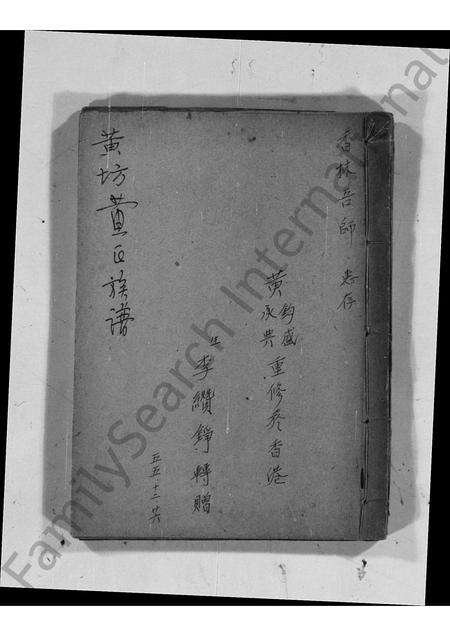 香林吾師 惠存
黃鈞盛
重修於香港
生 李纘錚 轉贈
五五·十二·廿六
黃坊黃氏族譜
FamilySearch International